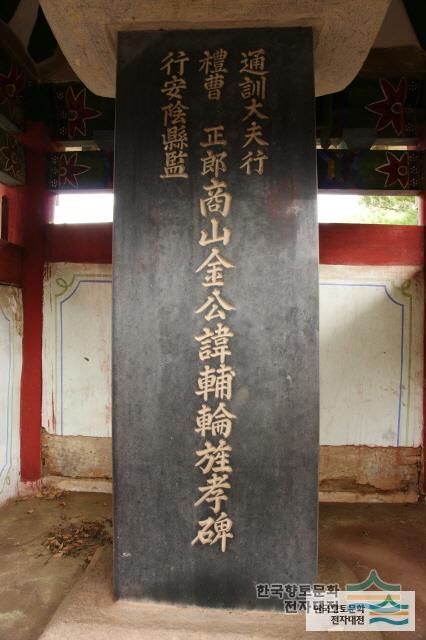 通訓大夫行
禮曹正郎商山金公諱輔輪旌孝碑
行安陰縣監
한국향토문화
전자대전
한국향토문화
전자대전